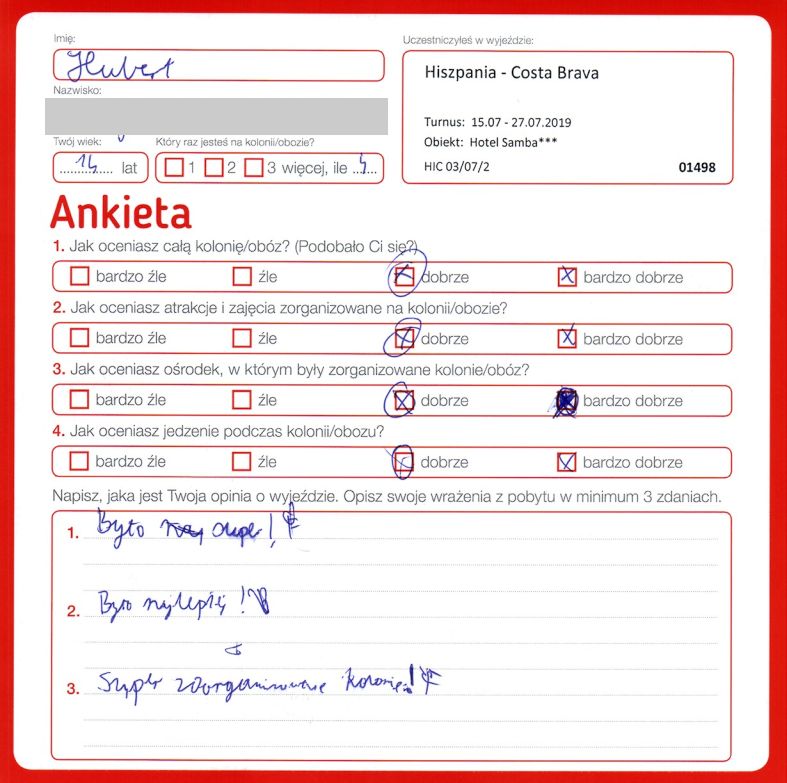 Imię:
Hubert
Nazwisko:
Twój wiek:
14 lat
Który raz jesteś na kolonii/obozie?
1 2 3 więcej, ile
Uczestniczyłeś w wyjeździe:
Hiszpania - Costa Brava
Turnus: 15.07 - 27.07.2019
Obiekt: Hotel Samba***
HIC 03/07/2 01498
Ankieta
1. Jak oceniasz całą kolonię/obóz? (Podobało Ci się?)
bardzo źle źle dobrze bardzo dobrze
2. Jak oceniasz atrakcje i zajęcia zorganizowane na kolonii/obozie?
bardzo źle źle dobrze bardzo dobrze
3. Jak oceniasz ośrodek, w którym były zorganizowane kolonie/obóz?
bardzo źle źle dobrze bardzo dobrze
4. Jak oceniasz jedzenie podczas kolonii/obozu?
bardzo źle źle dobrze bardzo dobrze
Napisz, jaka jest Twoja opinia o wyjeździe. Opisz swoje wrażenia z pobytu w minimum 3 zdaniach.
1. Było super!
2. Było najlepiej!
3. Super zoorganizowane kolonie!